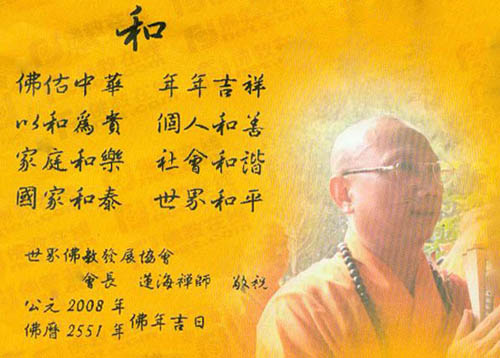 和
佛佑中華 年年吉祥
以和爲貴 個人和善
家庭和樂 社會和諧
國家和泰 世界和平
世界佛教發展協會
會長 蓮海禪師 敬祝
公元2008年
佛曆2551年 佛年吉日